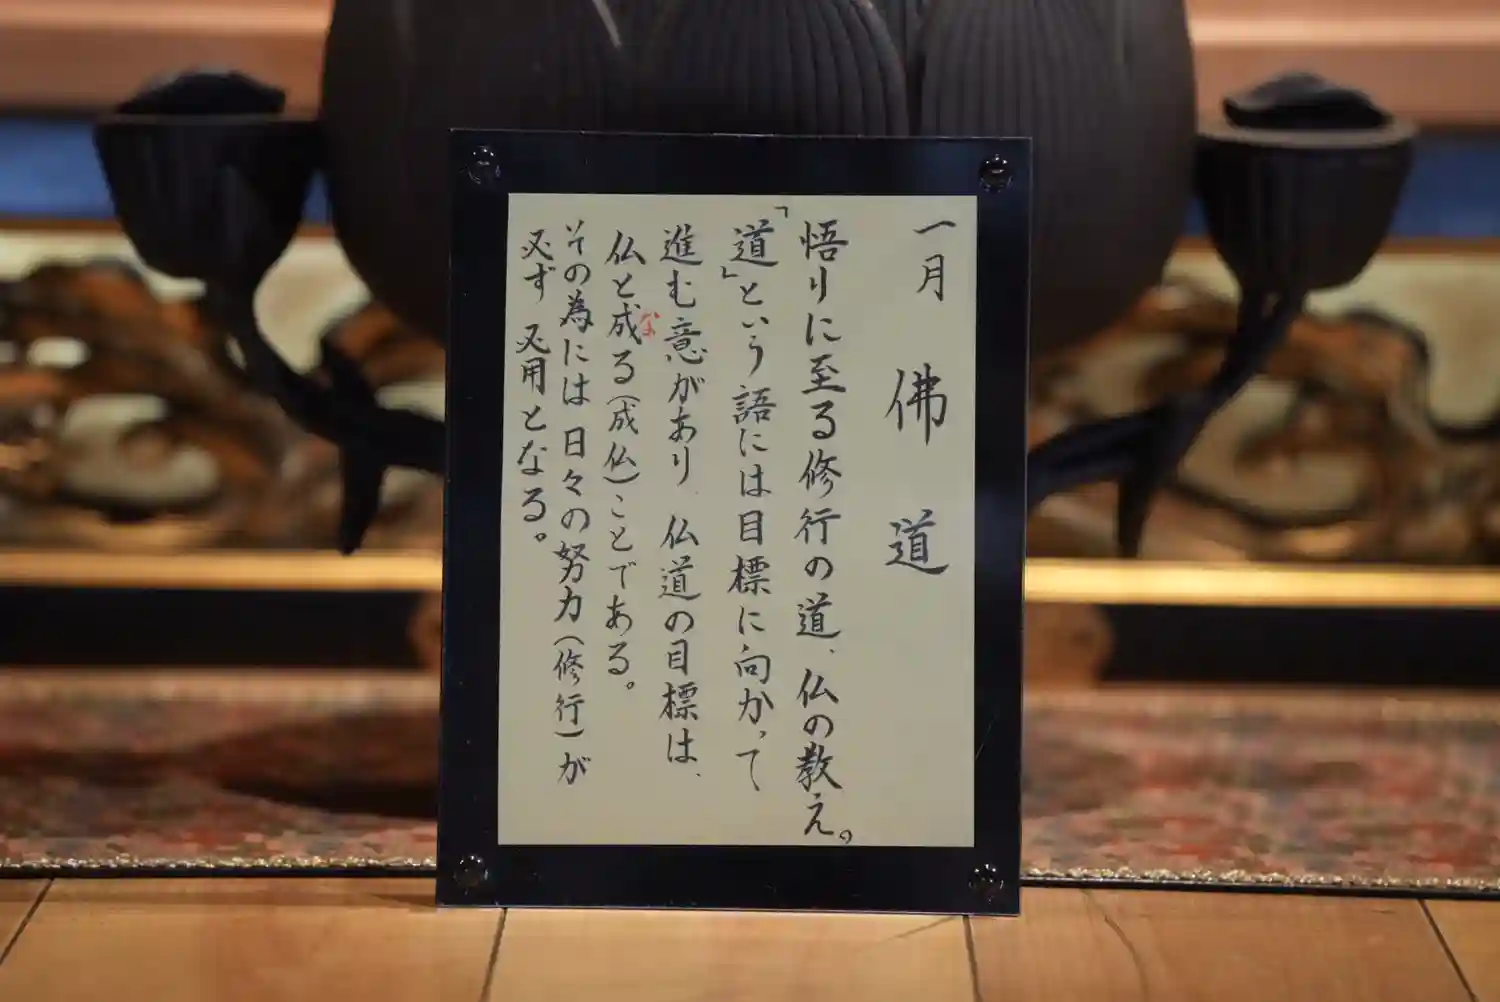 一月 佛道
悟りに至る修行の道、仏の教え。
「道」という語には目標に向かって
進む意があり、仏道の目標は、
仏と成る(成仏)ことである。
な
その為には日々の努力(修行)が
必ず必用となる。